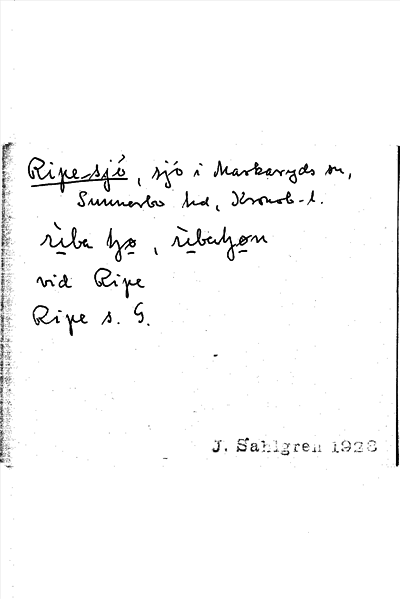 Ripe-sjö, sjö i Markaryds sn,
Sunnerbo hd, Kronob-l.
vid Ripe
Ripe s. G.
J. Sahlgren 1928